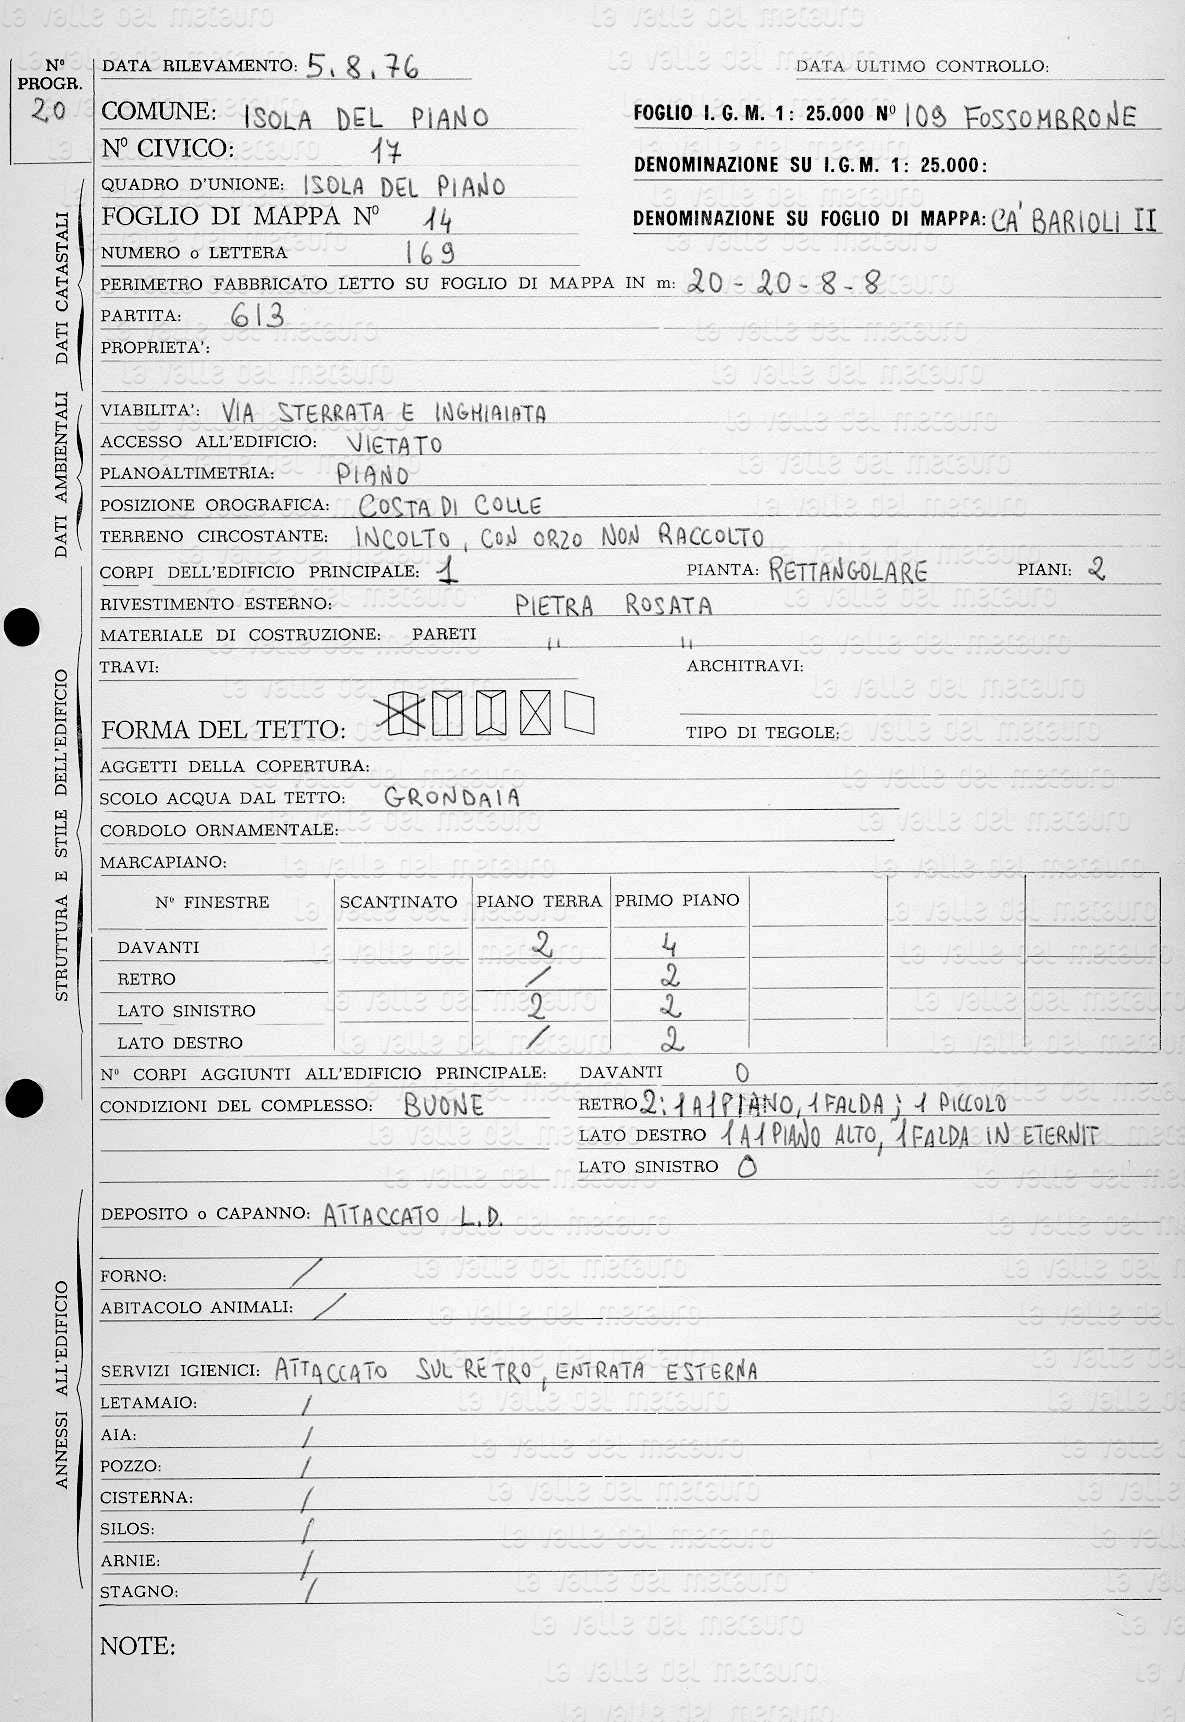 Nº PROGR. 20
DATA RILEVAMENTO: 5.8.76 DATA ULTIMO CONTROLLO:
COMUNE: ISOLA DEL PIANO FOGLIO I.G.M. 1: 25.000 Nº 109 FOSSOMBRONE
Nº CIVICO: 17
DENOMINAZIONE SU I.G.M. 1: 25.000:
QUADRO D'UNIONE: ISOLA DEL PIANO
FOGLIO DI MAPPA Nº 14 DENOMINAZIONE SU FOGLIO DI MAPPA: CA' BARIOLI II
NUMERO o LETTERA 169
PERIMETRO FABBRICATO LETTO SU FOGLIO DI MAPPA IN m: 20-20-8-8
PARTITA: 613
PROPRIETA':
DATI CATASTALI
VIABILITA': VIA STERRATA E INGHIAIATA
ACCESSO ALL'EDIFICIO: VIETATO
PLANOALTIMETRIA: PIANO
POSIZIONE OROGRAFICA: COSTA DI COLLE
TERRENO CIRCOSTANTE: INCOLTO, CON ORZO NON RACCOLTO
DATI AMBIENTALI
CORPI DELL'EDIFICIO PRINCIPALE: 1 PIANTA: RETTANGOLARE PIANI: 2
RIVESTIMENTO ESTERNO: PIETRA ROSATA
MATERIALE DI COSTRUZIONE: PARETI " "
TRAVI: ARCHITRAVI:
FORMA DEL TETTO: TIPO DI TEGOLE:
AGGETTI DELLA COPERTURA:
SCOLO ACQUA DAL TETTO: GRONDAIA
CORDOLO ORNAMENTALE:
MARCAPIANO:
Nº FINESTRE SCANTINATO PIANO TERRA PRIMO PIANO
DAVANTI 2 4
RETRO / 2
LATO SINISTRO 2 2
LATO DESTRO / 2
STRUTTURA E STILE DELL'EDIFICIO
Nº CORPI AGGIUNTI ALL'EDIFICIO PRINCIPALE: DAVANTI 0
CONDIZIONI DEL COMPLESSO: BUONE RETRO 2: 1 A 1 PIANO, 1 FALDA; 1 PICCOLO
LATO DESTRO 1 A 1 PIANO ALTO, 1 FALDA IN ETERNIT
LATO SINISTRO 0
DEPOSITO o CAPANNO: ATTACCATO L.D.
FORNO: /
ABITACOLO ANIMALI: /
SERVIZI IGIENICI: ATTACCATO SUL RETRO, ENTRATA ESTERNA
LETAMAIO: /
AIA: /
POZZO: /
CISTERNA: /
SILOS: /
ARNIE: /
STAGNO: /
ANNESSI ALL'EDIFICIO
NOTE:
la valle del metauro